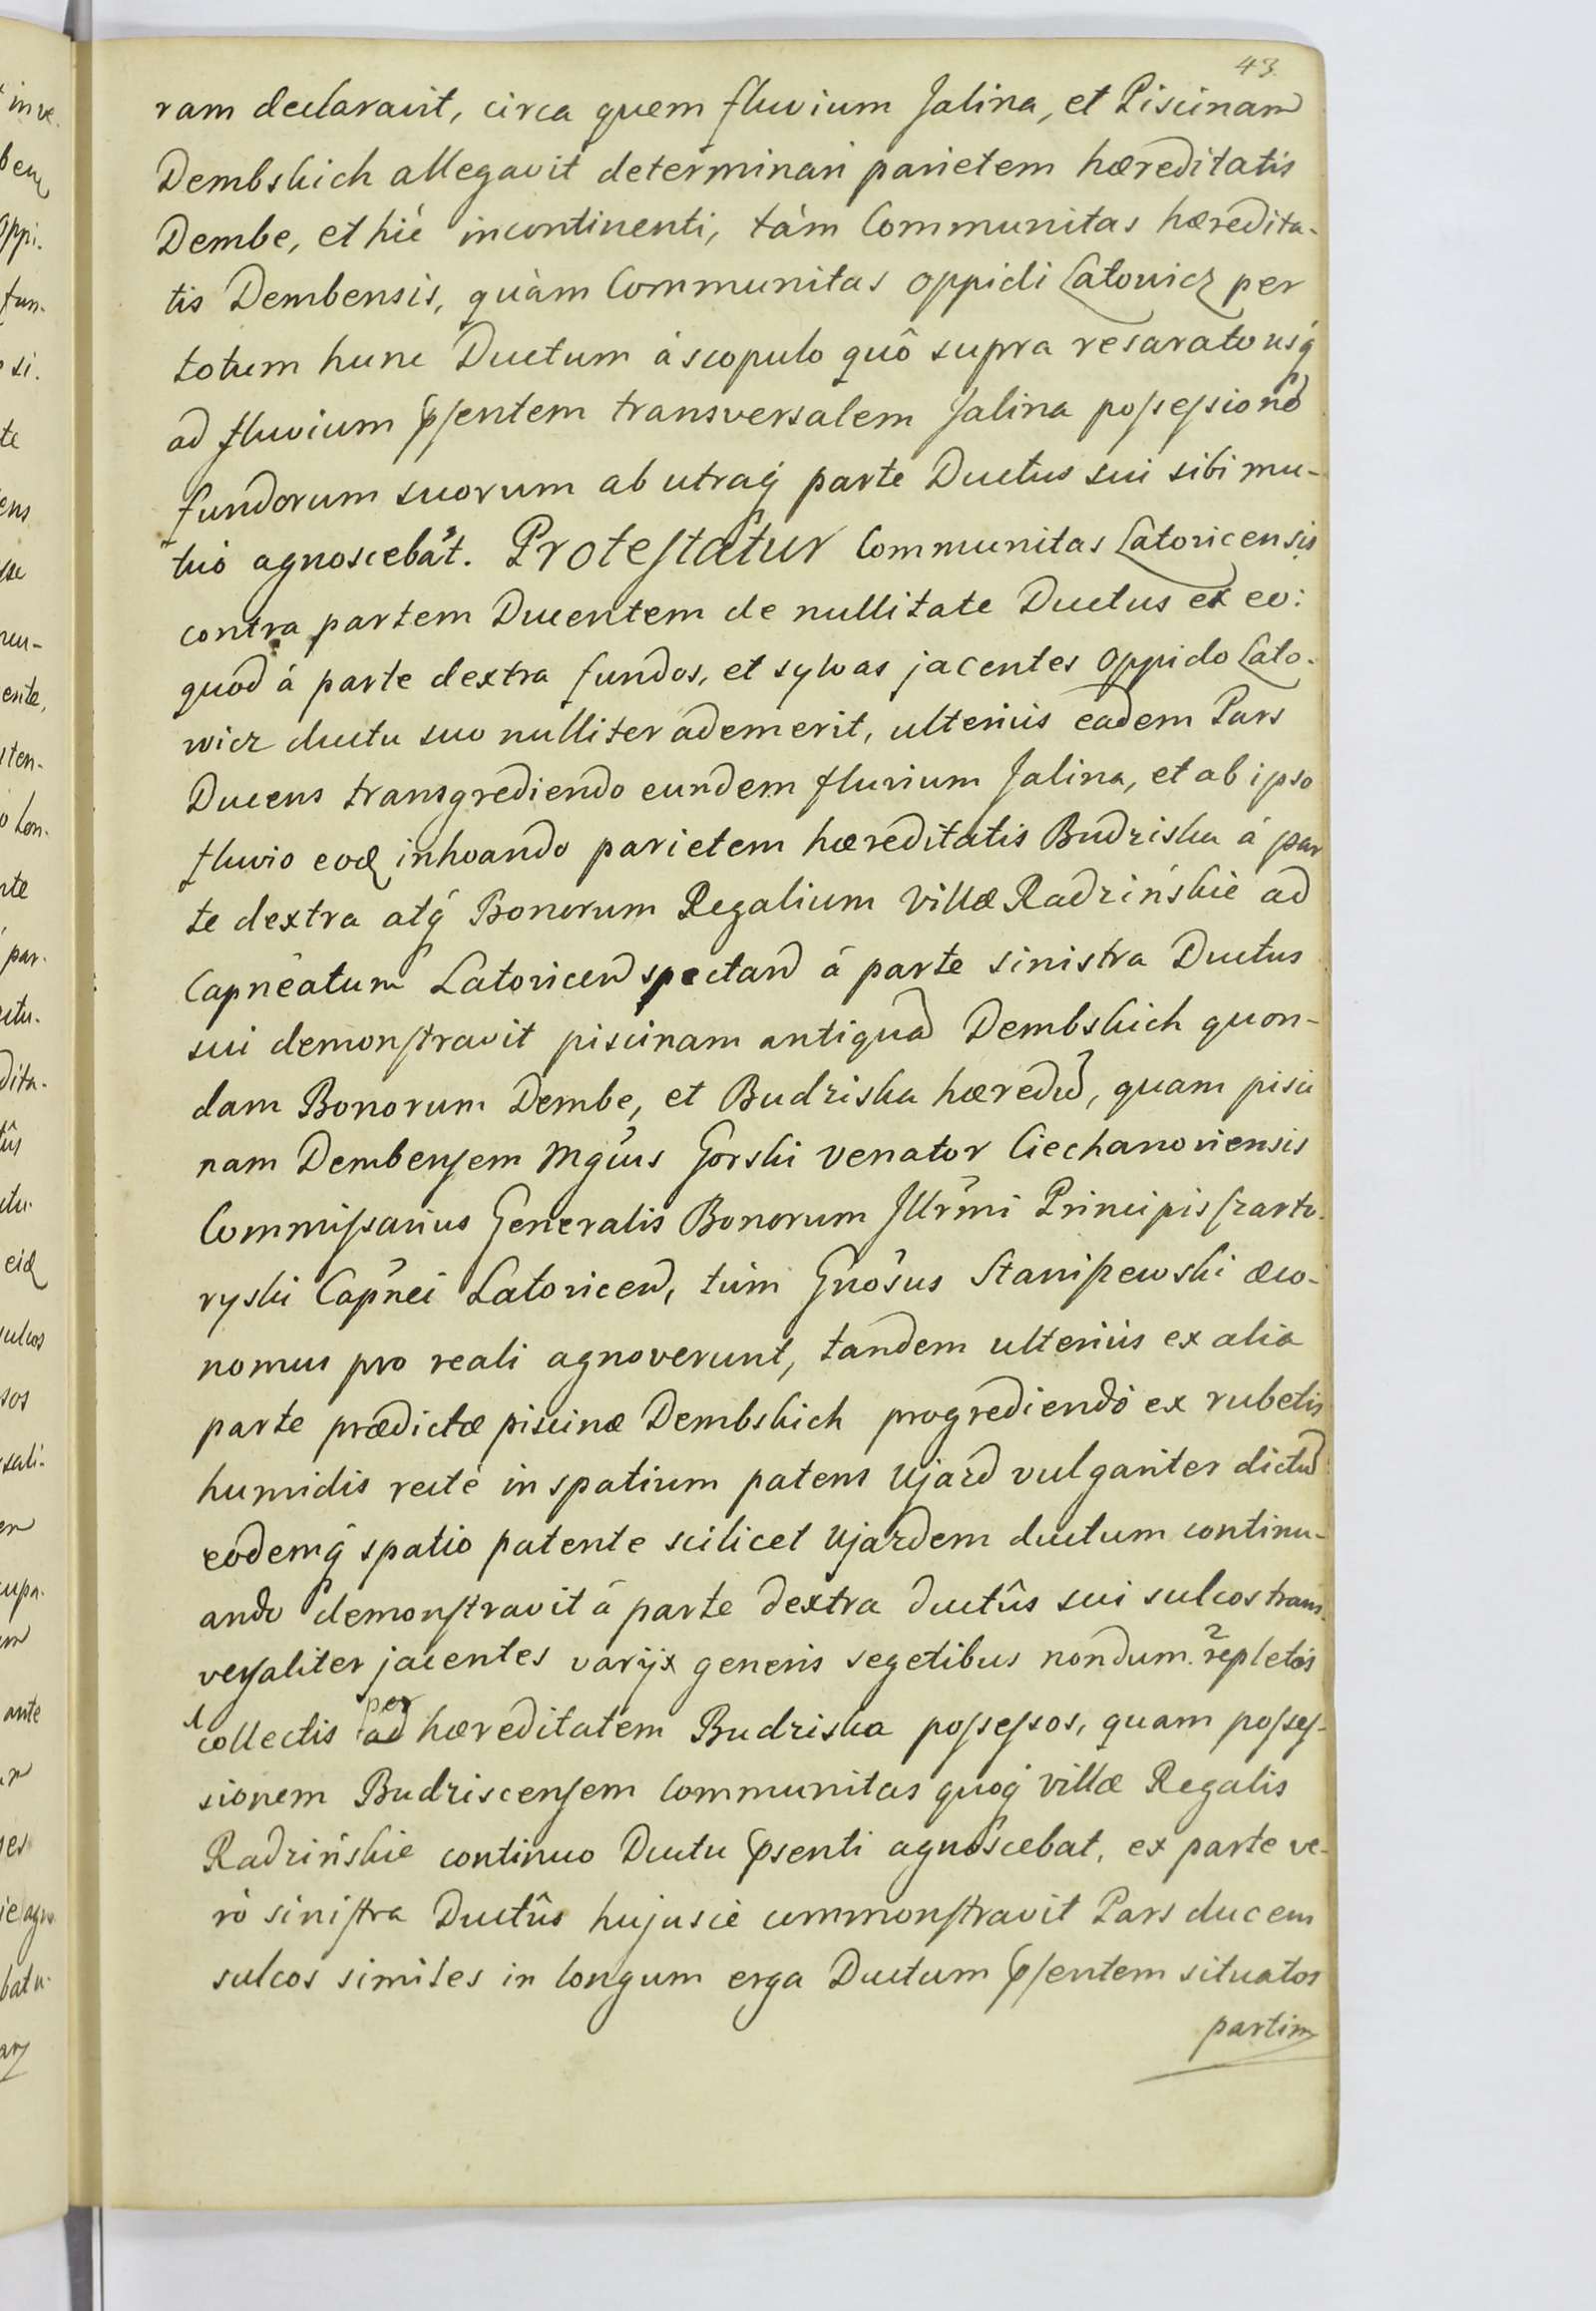 43.
ram declaravit, circa quem fluvium Jalina, et Piscinam
Dembskich allegavit determinari parietem hæreditatis
Dembe, et hìc incontinenti, tàm Communitas hæredita-
tis Dembensis, quàm Communitas oppidi Latowicz per
totum hunc Ductum à scopulo quô supra resarato usq́
ad fluvium pſentem transversalem Jalina poſseſsionẽ
fundorum suorum ab utraq́ parte Ductus sui sibi mu-
tuò agnoscebãt. Proteſtatur Communitas Latovicensis
contra partem Ducentem de nullitate Ductus ex eo:
quod á parte dextra fundos, et sylvas jacentes oppido Lato-
wicz ductu suo nulliter ademerit, ulteriùs eadem Pars
Ducens transgrediendo eundem fluvium Jalina, et ab ipso
fluvio eod inhoando parietem hæreditatis Budziska á par
te dextra atq́ Bonorum Regalium villæ Radzińskie ad
Capnẽatum Latovicen spectan á parte sinistra Ductus
sui demonſtravit piscinam antiquã Dembskich quon-
dam Bonorum Dembe, et Budziska hæredũ, quam pisci
nam Dembenſem Mgũus Gorski Venator Ciechanoviensis
Commiſsarius Generalis Bonorum Jllr̃mi Principis Czarto-
ryski Capñei Latovicen, tùm Gnõsus Staniſzewski œco-
nomus pro reali agnoverunt, tandem ulteriùs ex alia
parte prædictæ piscinæ Dembskich progrediendò ex rubetis
humidis rectè in spatium patens Ujazd vulgariter dictũ
eodemq́ spatio patente scilicet Ujazdem ductum continu-
ando demonſtravit á parte dextra ductûs sui sulcos trans-
verſaliter jacentes varijx generis segetibus nondum 2 repletos
1 collectis ad per hæreditatem Budziska poſseſsos, quam poſseſ-
sionem Budziscenſem Communitas quoq́ villæ Regalis
Radzińskie continuo Ductu pſenti agnoscebat, ex parte ve-
rò siniſtra Ductûs hujusce commonſtravit Pars ducens
sulcos similes in longum erga Ductum pſentem situatos
partim